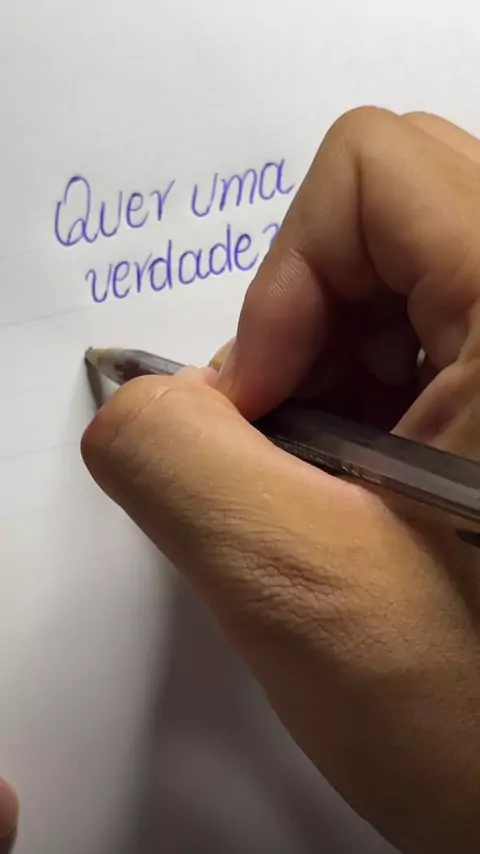 Quer uma
verdade?